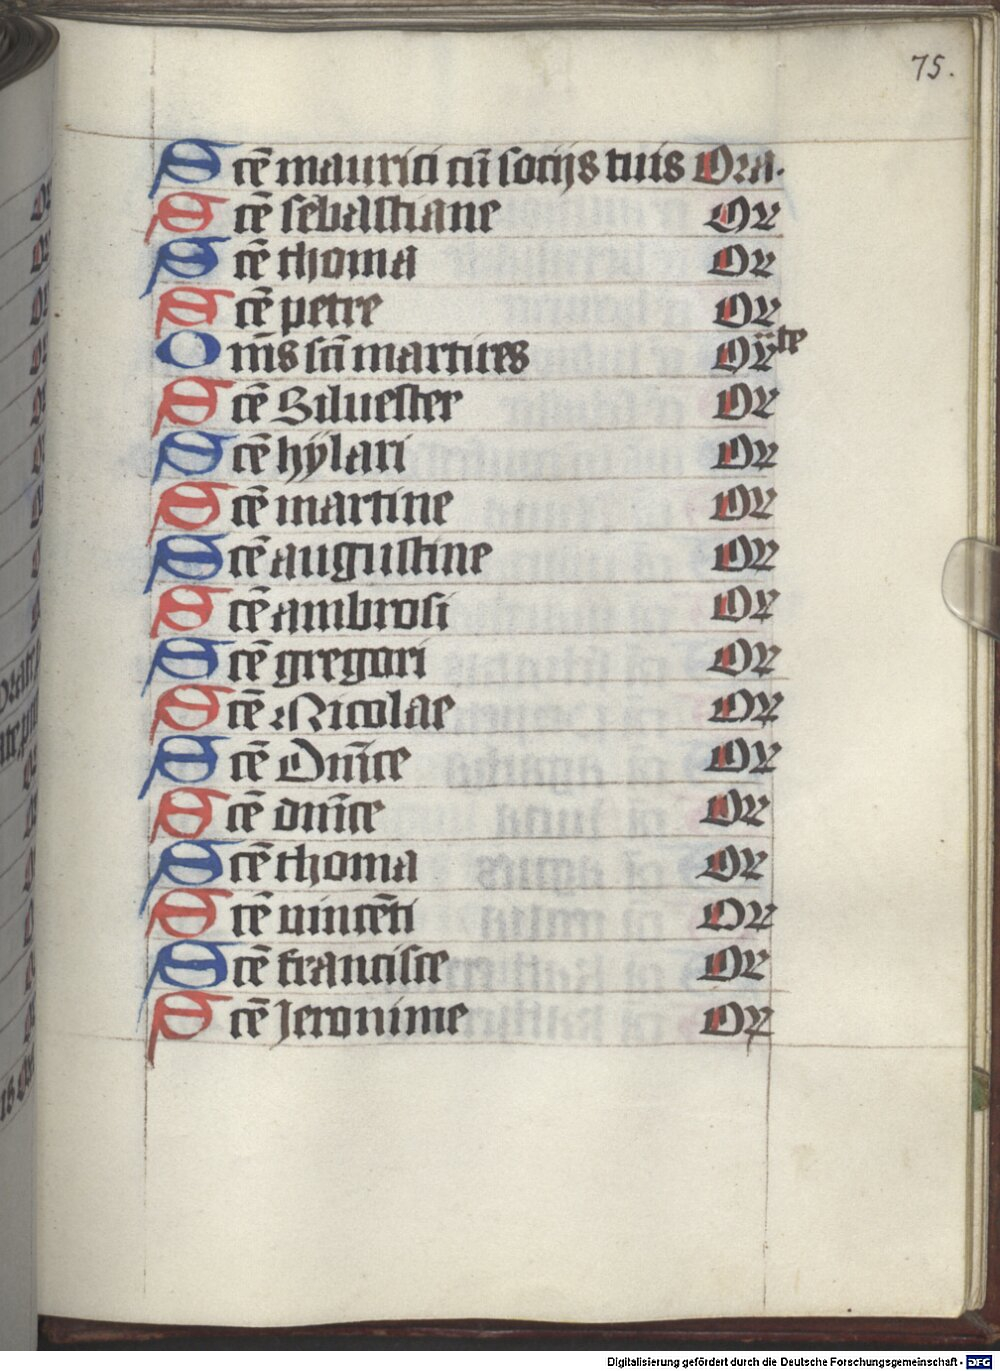 75.
Scē mauricii cū socijs tuis Ora.
Scē sebastiane Or
Scē thoma Or
Scē petre Or
Om̄s scī martires Orate
Scē Siluester Or
Scē hÿlari Or
Scē martine Or
Scē augustine Or
Scē ambrosi Or
Scē gregori Or
Scē Nicolae Or
Scē Dn̄ice Or
Scē dn̄ice Or
Scē thoma Or
Scē uincēti Or
Scē francisce Or
Scē Jeronime Or
Digitalisierung gefördert durch die Deutsche Forschungsgemeinschaft - DFG